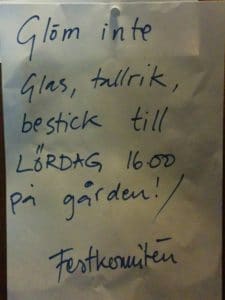 Glöm inte
Glas, tallrik,
bestick till
LÖRDAG 16.00
på gården!
Festkommitén